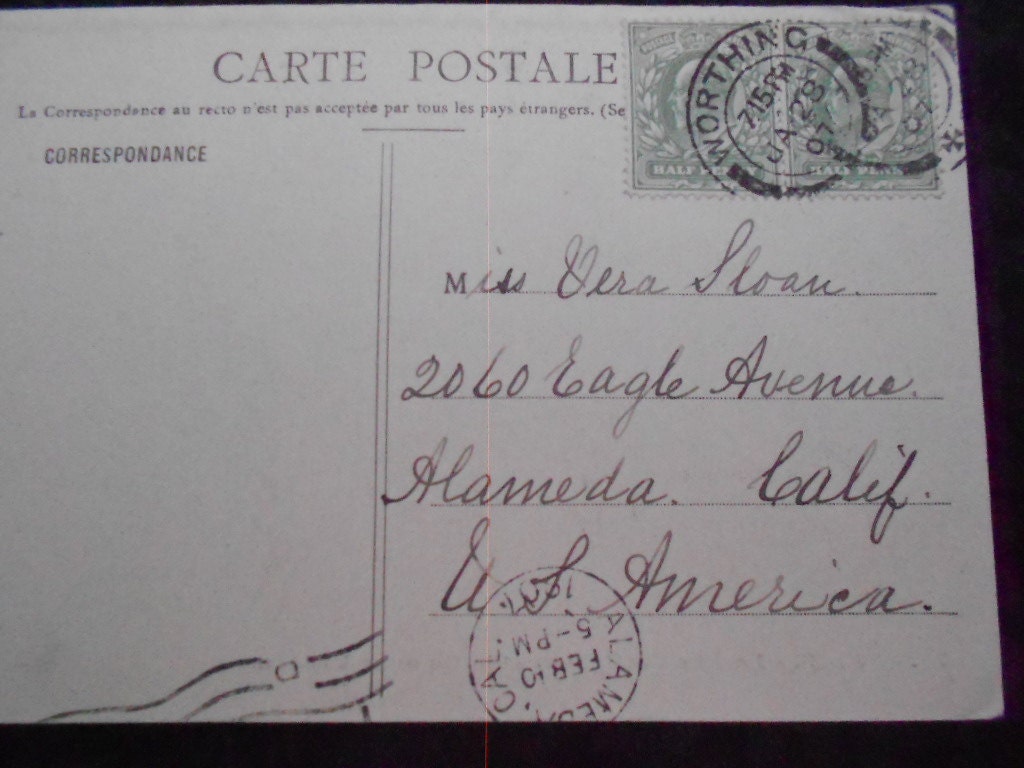 CARTE POSTALE
La Correspondance au recto n'est pas acceptée par tous les pays étrangers. (Se
CORRESPONDANCE
WORTHING
7.15 PM
JA 28
05
HALF PENNY
HALF PENNY
Miss Vera Sloan.
2060 Eagle Avenue.
Alameda. Calif.
U. S. America.
ALAMEDA, CAL.
FEB 10
5-PM
D